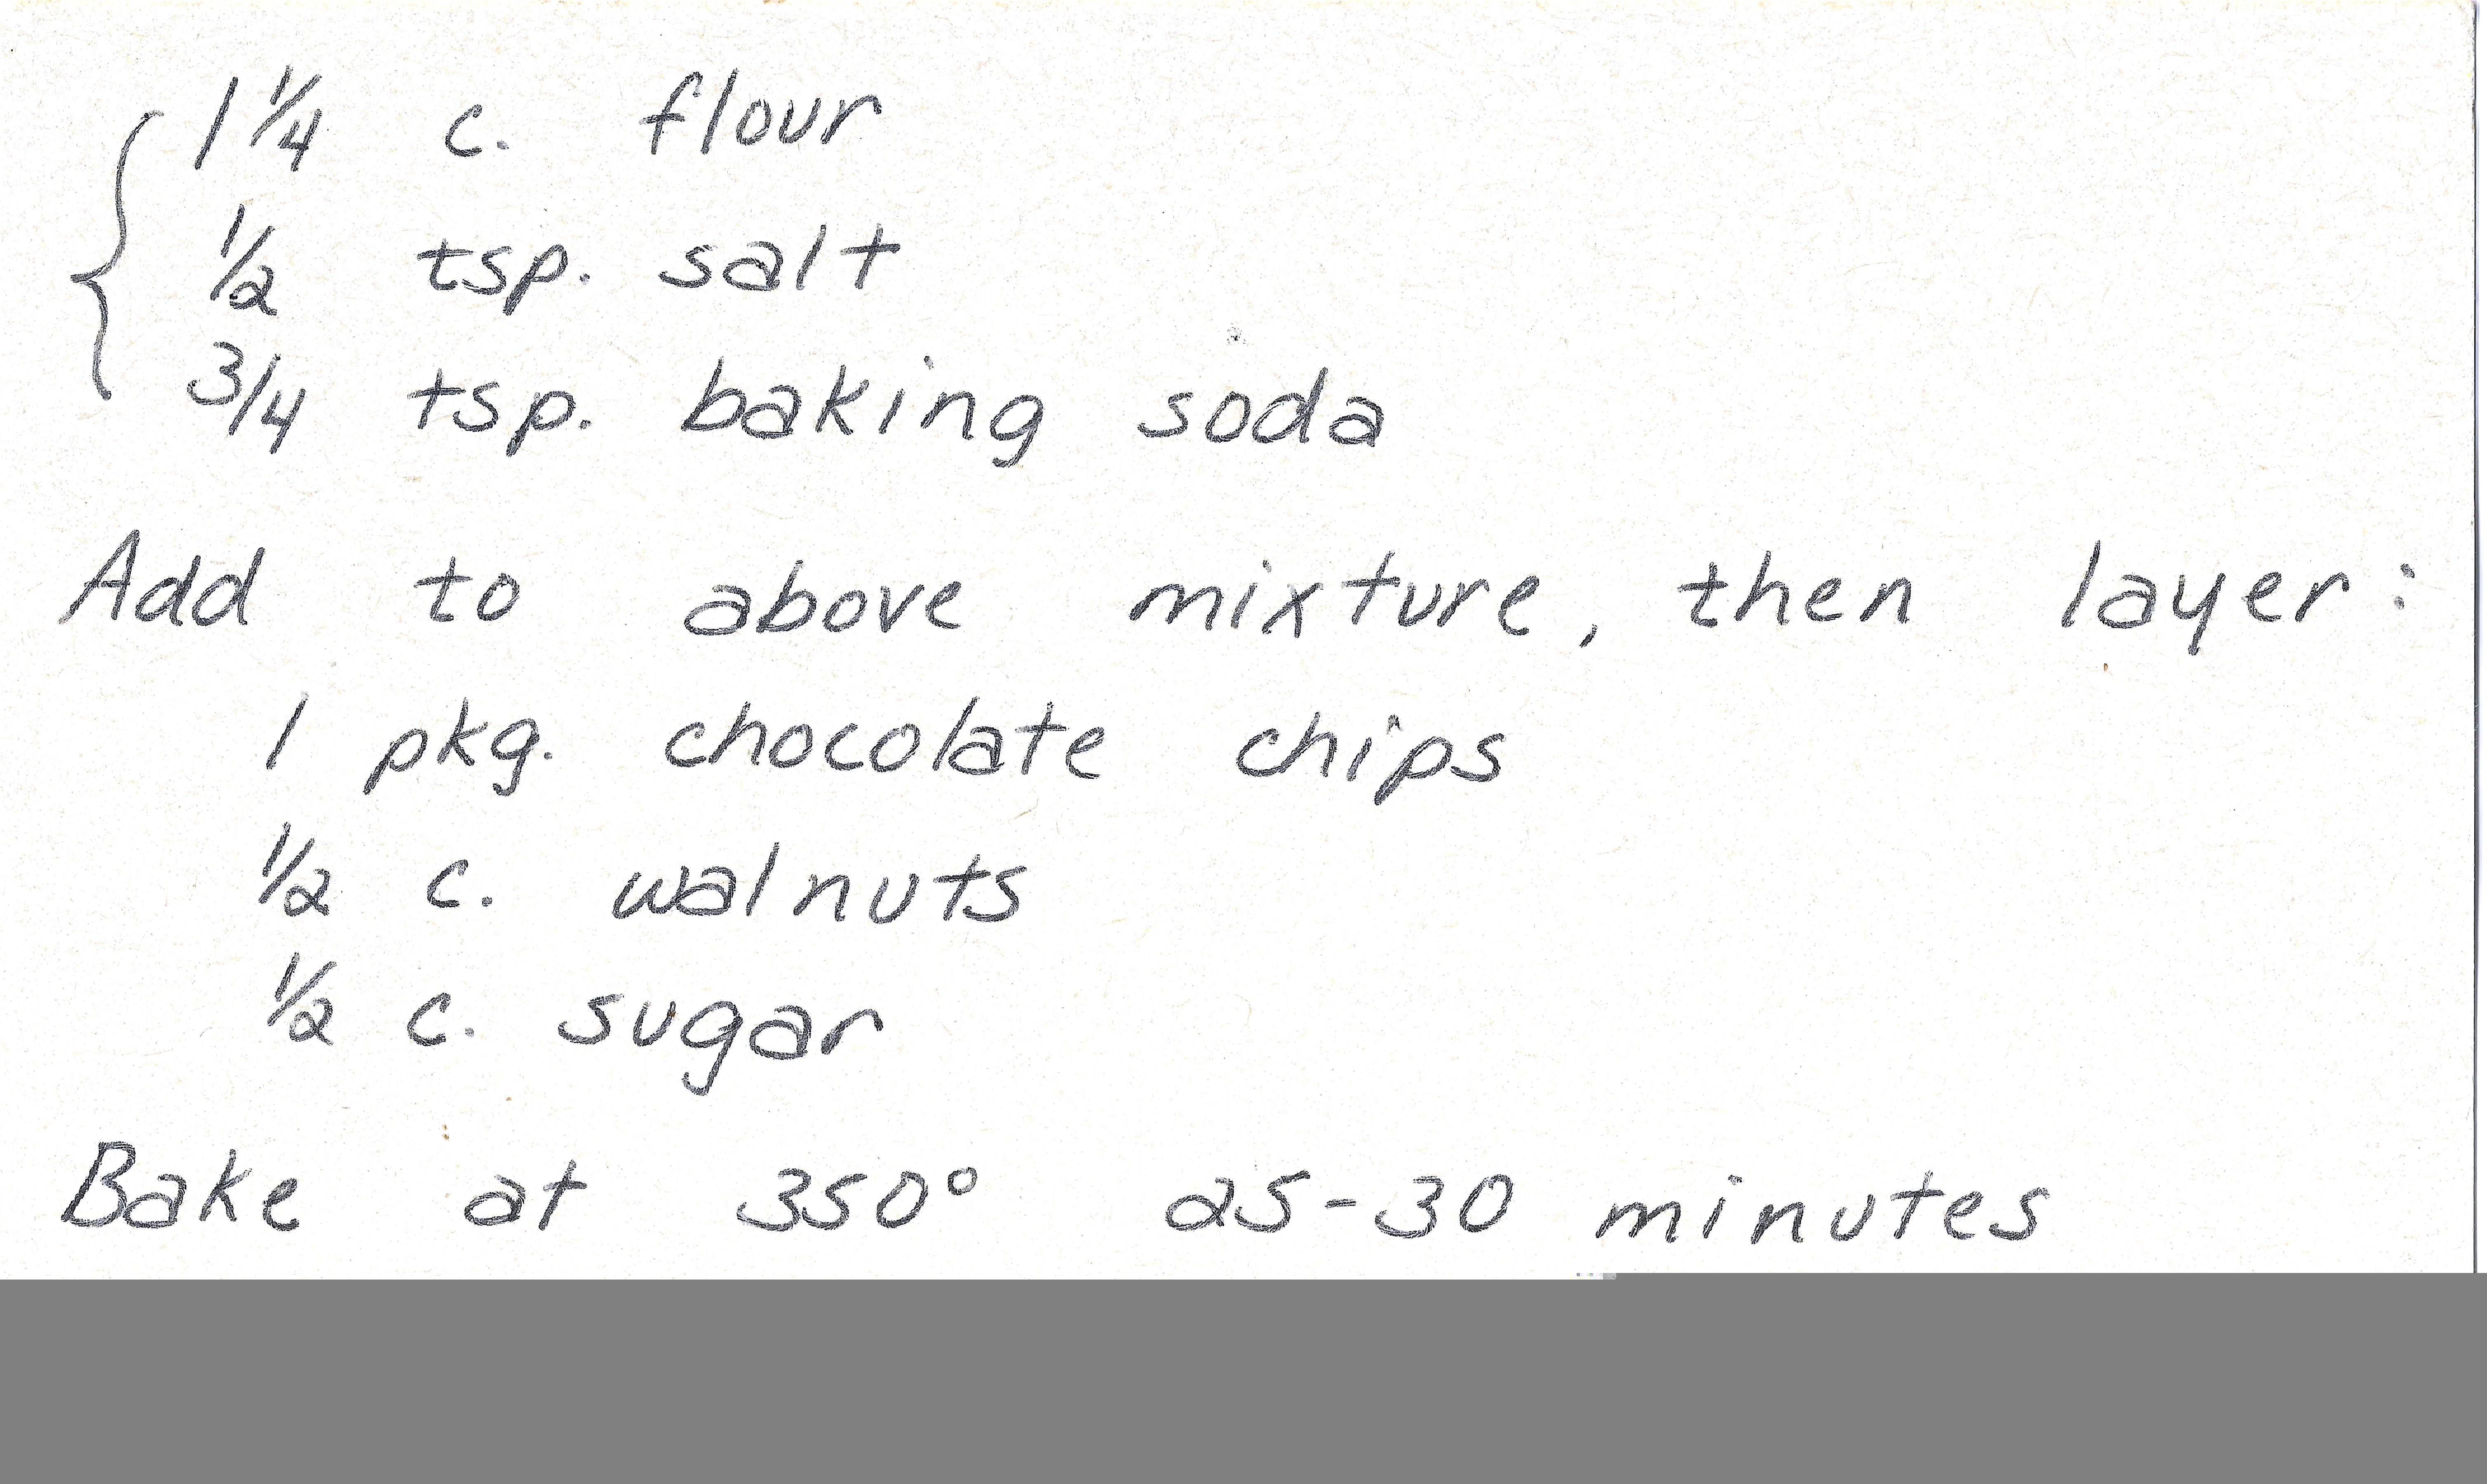 1 1/4 c. flour
1/2 tsp. salt
3/4 tsp. baking soda
Add to above mixture, then layer:
1 pkg. chocolate chips
1/2 c. walnuts
1/2 c. sugar
Bake at 350° 25-30 minutes